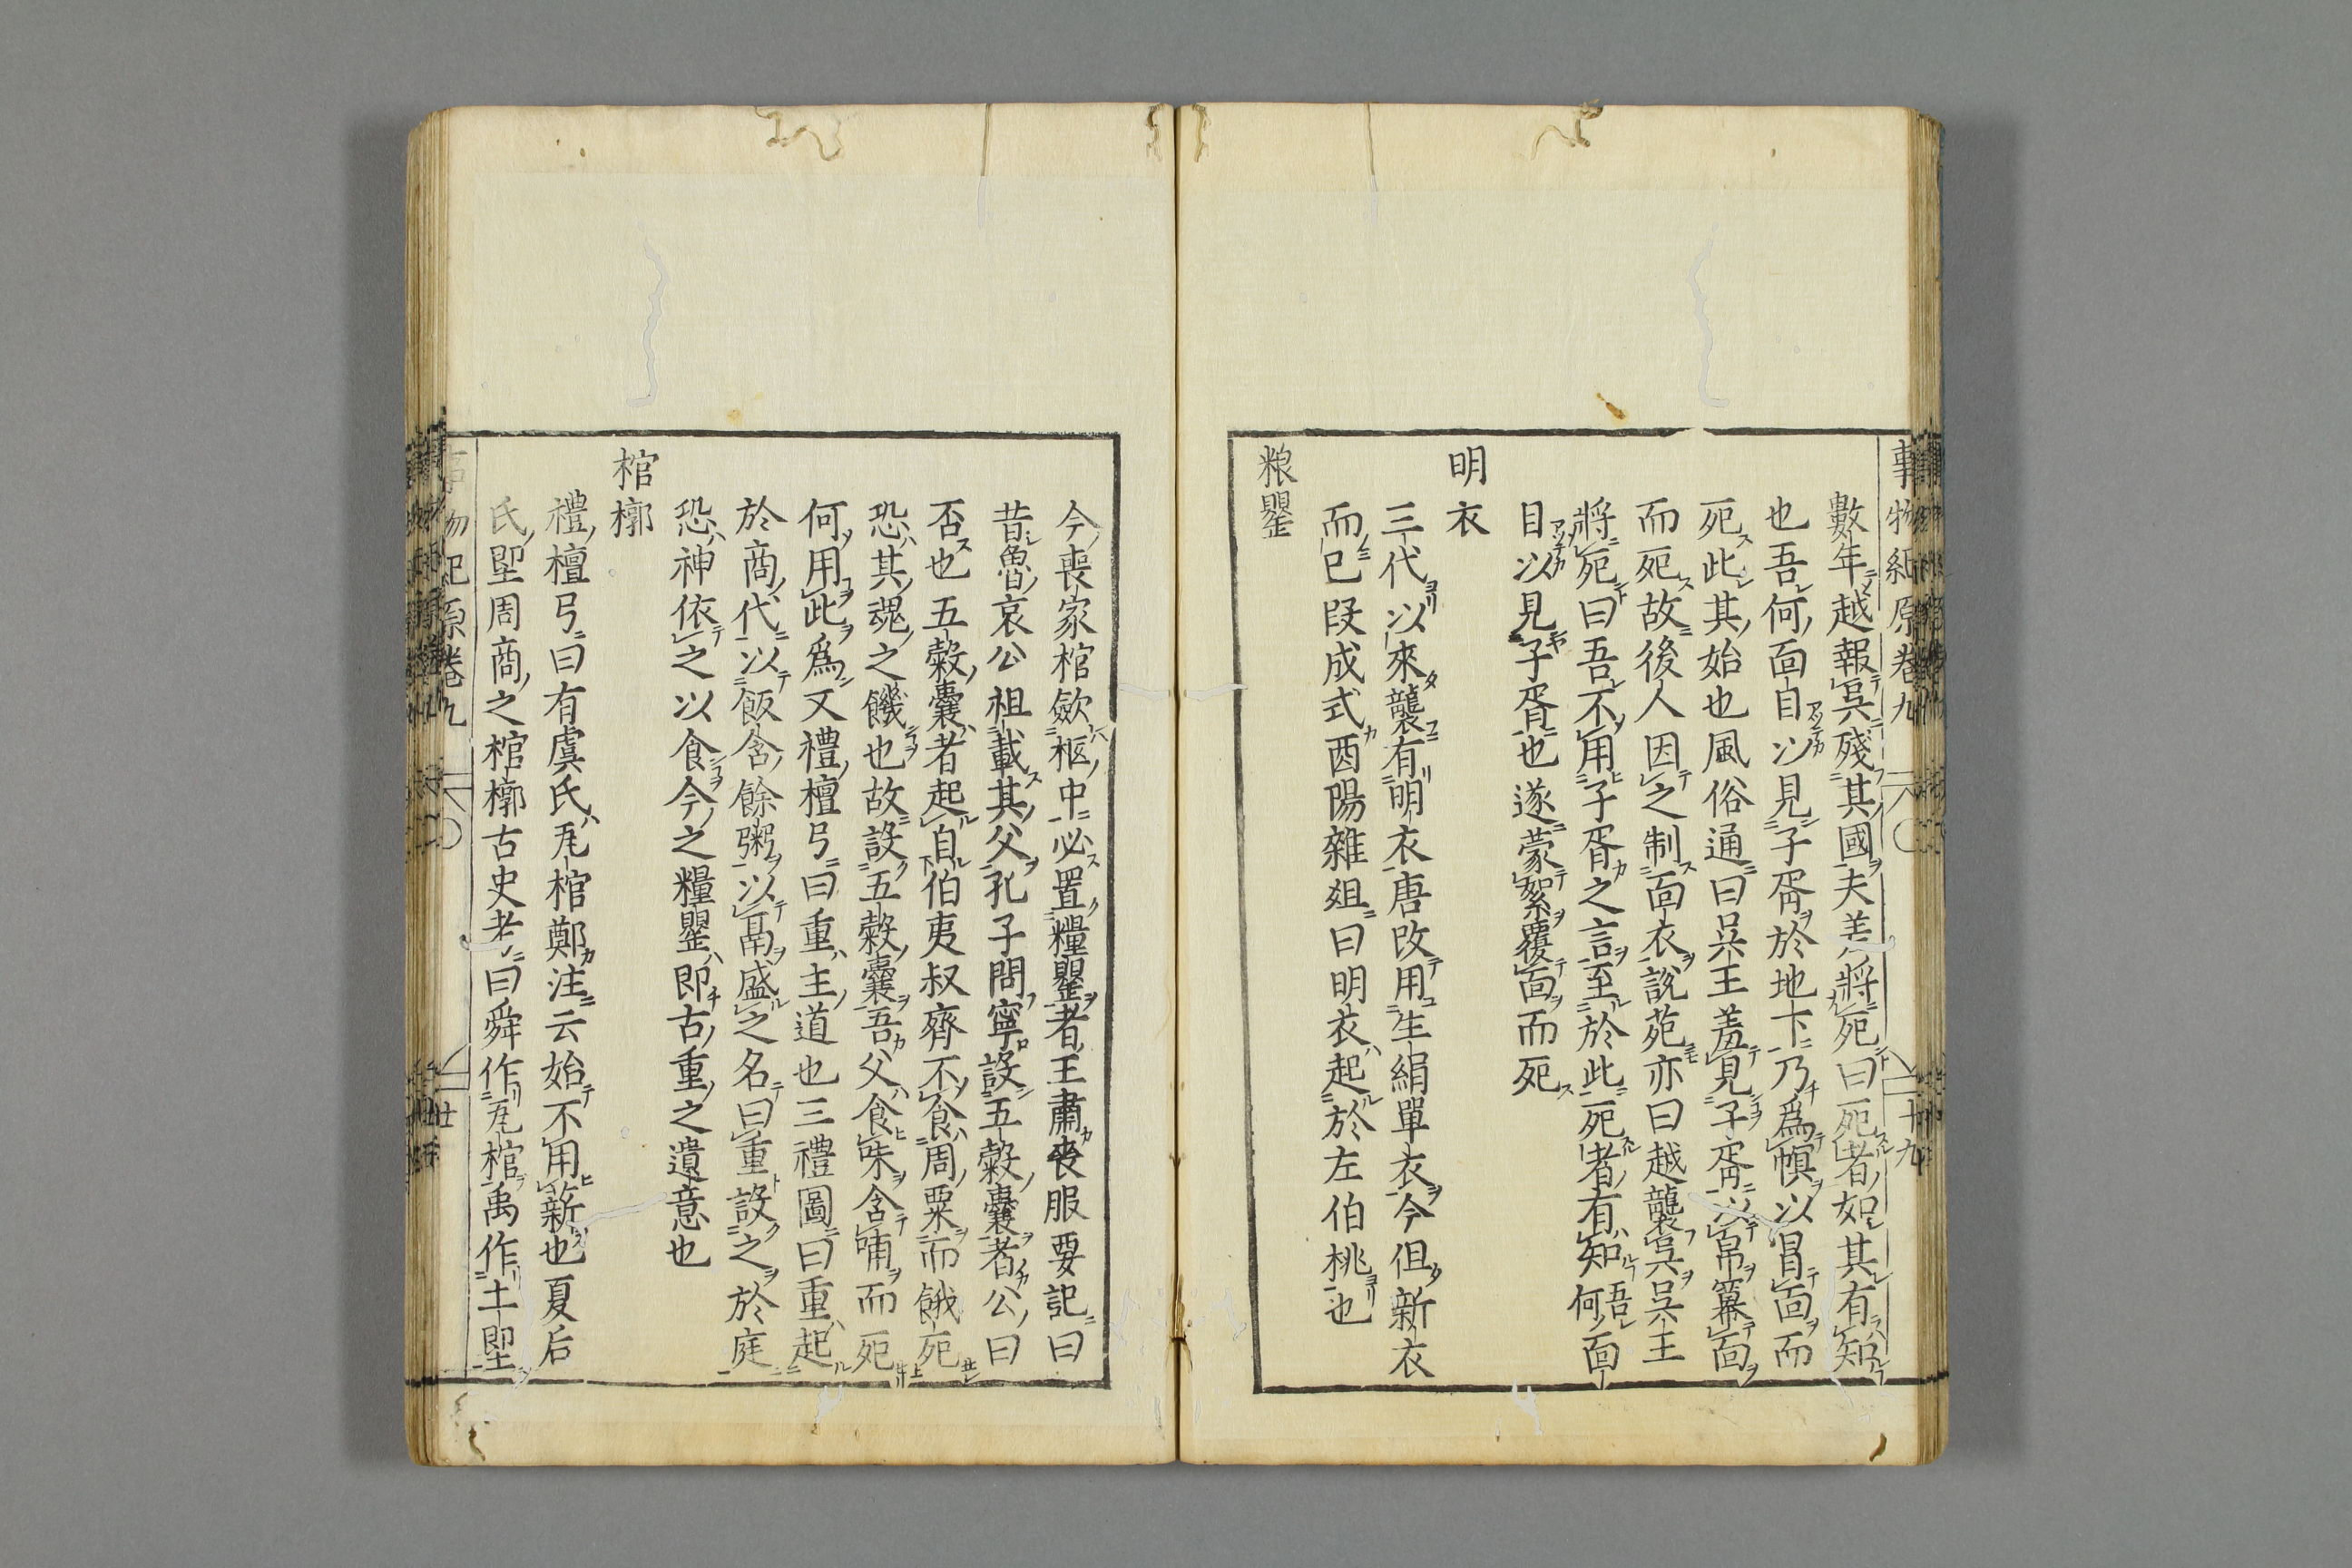 事物紀原卷九 十九
數年越報吳殘其國夫差將死曰死者如其有知
也吾何面目以見子胥於地下乃爲幎以冒面而
死此其始也風俗通曰吳王羞見子胥以帛冪面
而死故後人因之制面衣說苑亦曰越襲吳吳王
將死曰吾不用子胥之言至於此死者有知吾何面
目以見子胥也遂蒙絮覆面而死
明衣
三代以來襲有明衣唐改用生絹單衣今但新衣
而已段成式酉陽雜俎曰明衣起於左伯桃也
粮罌
今喪家棺歛柩中必置糧罌者王肅喪服要記曰
昔魯哀公祖載其父孔子問寧設五穀囊者公曰
否也五穀囊者起自伯夷叔齊不食周粟而餓死
恐其魂之饑也故設五穀囊吾父食味含哺而死
何用此爲又禮檀弓曰重主道也三禮圖曰重起
於商代以飯含餘粥以鬲盛之名曰重設之於庭
恐神依之以食今之糧罌即古重之遺意也
棺槨
禮檀弓曰有虞氏瓦棺鄭注云始不用薪也夏后
氏堲周商之棺槨古史考曰舜作瓦棺禹作土堲
事物紀原卷九 廿